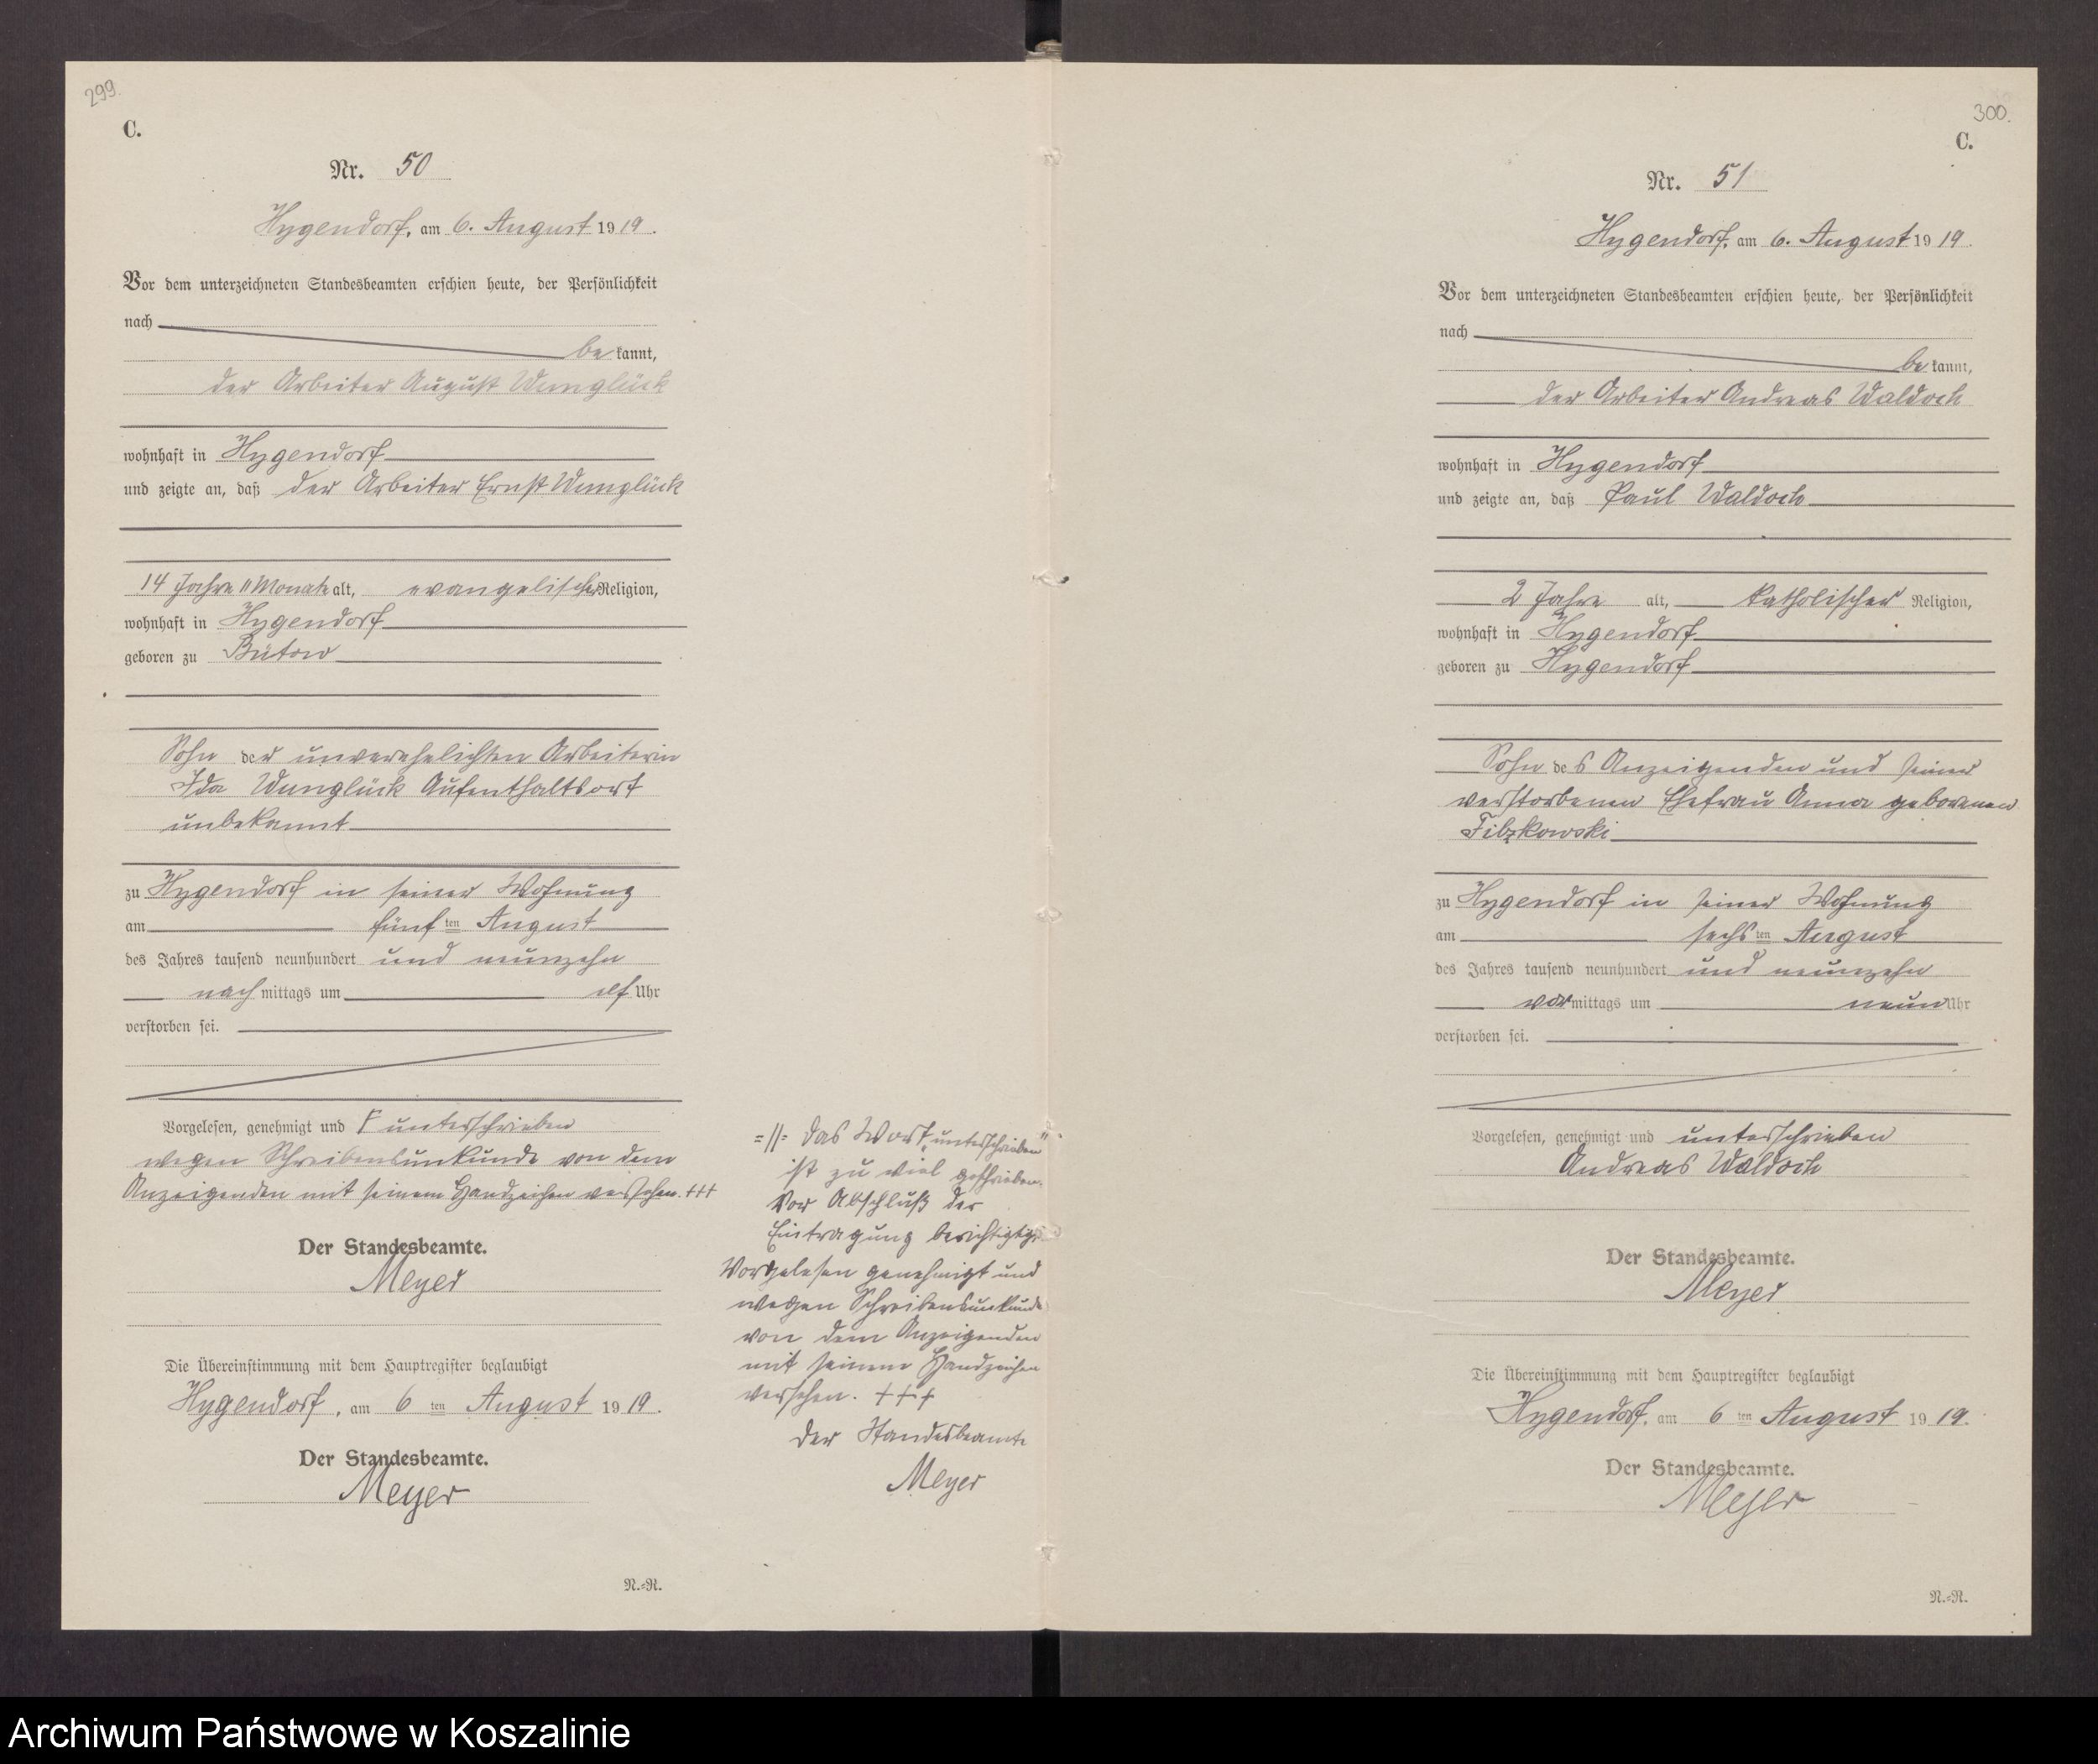 299.
C.
Nr. 50
Hygendorf, am 6. August 1919.
Vor dem unterzeichneten Standesbeamten erschien heute, der Persönlichkeit
nach
be kannt,
der Arbeiter August Wunglück
wohnhaft in Hygendorf
und zeigte an, daß der Arbeiter Ernst Wunglück
14 Jahre 11 Monate alt, evangelischer Religion,
wohnhaft in Hygendorf
geboren zu Bütow
Sohn der unverehelichten Arbeiterin
Ida Wunglück Aufenthaltsort
unbekannt
zu Hygendorf in seiner Wohnung
am fünf ten August
des Jahres tausend neunhundert und neunzehn
nach mittags um elf Uhr
verstorben sei.
Vorgelesen, genehmigt und unterschrieben
wegen Schreibensunkunde von dem
Anzeigenden mit seinem Handzeichen versehen. +++
Der Standesbeamte.
Meyer
Die Übereinstimmung mit dem Hauptregister beglaubigt
Hygendorf, am 6 ten August 1919.
Der Standesbeamte.
Meyer
N.=R.
=//= Das Wort „unterschrieben"
ist zu viel geschrieben.
Vor Abschluß der
Eintragung berichtigt
Vorgelesen genehmigt und
wegen Schreibensunkunde
von dem Anzeigenden
mit seinem Handzeichen
versehen. +++
Der Standesbeamte
Meyer
300.
C.
Nr. 51
Hygendorf, am 6. August 1919.
Vor dem unterzeichneten Standesbeamten erschien heute, der Persönlichkeit
nach
be kannt,
der Arbeiter Andreas Waldoch
wohnhaft in Hygendorf
und zeigte an, daß Paul Waldoch
2 Jahre alt, katholischer Religion,
wohnhaft in Hygendorf
geboren zu Hygendorf
Sohn des Anzeigenden und seiner
verstorbenen Ehefrau Anna geborenen
zu Hygendorf in seiner Wohnung
am sechs ten August
des Jahres tausend neunhundert und neunzehn
vor mittags um neun Uhr
verstorben sei.
Vorgelesen, genehmigt und unterschrieben
Andreas Waldoch
Der Standesbeamte.
Meyer
Die Übereinstimmung mit dem Hauptregister beglaubigt
Hygendorf, am 6 ten August 1919.
Der Standesbeamte.
Meyer
N.=R.
Archiwum Państwowe w Koszalinie